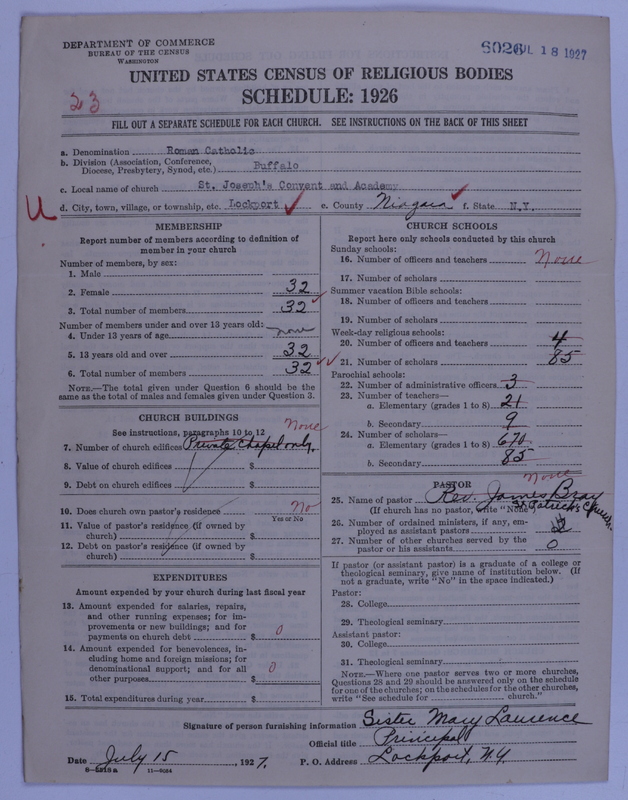 DEPARTMENT OF COMMERCE
BUREAU OF THE CENSUS
WASHINGTON
6026 JUL 18 1927
UNITED STATES CENSUS OF RELIGIOUS BODIES
SCHEDULE: 1926
23
FILL OUT A SEPARATE SCHEDULE FOR EACH CHURCH. SEE INSTRUCTIONS ON THE BACK OF THIS SHEET
a. Denomination Roman Catholic
b. Division (Association, Conference, Diocese, Presbytery, Synod, etc.) Buffalo
c. Local name of church St. Joseph's Convent and Academy
U d. City, town, village, or township, etc. Lockport e. County Niagara f. State N.Y.
MEMBERSHIP
Report number of members according to definition of
member in your church
Number of members, by sex:
1. Male
2. Female 32
3. Total number of members 32
Number of members under and over 13 years old:
4. Under 13 years of age none
5. 13 years old and over 32
6. Total number of members 32
NOTE.—The total given under Question 6 should be the
same as the total of males and females given under Question 3.
CHURCH BUILDINGS
See instructions, paragraphs 10 to 12 None
7. Number of church edifices Private Chapel only.
8. Value of church edifices $
9. Debt on church edifices $
10. Does church own pastor's residence No
Yes or No
11. Value of pastor's residence (if owned by
church) $
12. Debt on pastor's residence (if owned by
church) $
EXPENDITURES
Amount expended by your church during last fiscal year
13. Amount expended for salaries, repairs,
and other running expenses; for im-
provements or new buildings; and for
payments on church debt $ 0
14. Amount expended for benevolences, in-
cluding home and foreign missions; for
denominational support; and for all
other purposes $ 0
15. Total expenditures during year $
CHURCH SCHOOLS
Report here only schools conducted by this church
Sunday schools:
16. Number of officers and teachers None
17. Number of scholars
Summer vacation Bible schools:
18. Number of officers and teachers
19. Number of scholars
Week-day religious schools:
20. Number of officers and teachers 4
21. Number of scholars 85
Parochial schools:
22. Number of administrative officers 3
23. Number of teachers—
a. Elementary (grades 1 to 8) 21
b. Secondary 9
24. Number of scholars—
a. Elementary (grades 1 to 8) 670
b. Secondary 85
PASTOR None
25. Name of pastor Rev. James Bray
(If church has no pastor, write "None") St. Patrick's Church.
26. Number of ordained ministers, if any, em-
ployed as assistant pastors 2
27. Number of other churches served by the
pastor or his assistants 0
If pastor (or assistant pastor) is a graduate of a college or
theological seminary, give name of institution below. (If
not a graduate, write "No" in the space indicated.)
Pastor:
28. College
29. Theological seminary
Assistant pastor:
30. College
31. Theological seminary
NOTE.—Where one pastor serves two or more churches,
Questions 28 and 29 should be answered only on the schedule
for one of the churches; on the schedules for the other churches,
write "See schedule for church."
Signature of person furnishing information Sister Mary Laurence
Official title Principal
Date July 15, 1927. P. O. Address Lockport, N.Y.
8-5518a 11-9084